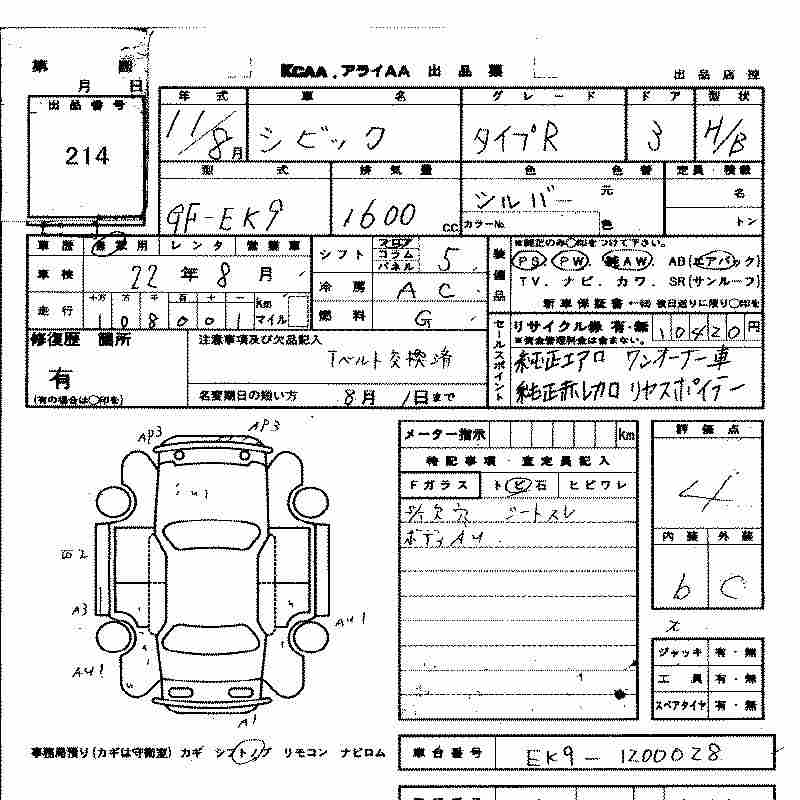 第 回
月 日
KCAA、アライAA 出品票
出品店控
出品番号
214
年式 車名 グレード ドア 型状
11/8月 シビック タイプR 3 H/B
型式 排気量 色 色替 定員・積載
GF-EK9 1600 C.C. シルバー 元色 名
カラーNo. トン
車歴 自家用 レンタ 営業車
車検 22年8月
走行 十万 万 千 百 十 一 Km マイル
108001
シフト フロア コラム パネル 5
冷房 AC
燃料 G
装備品
※純正のみ○印をつけて下さい。
PS. PW. 純AW. AB(エアバック)
TV. ナビ. カワ. SR(サンルーフ)
新車保証書 ←後日送りに限り○印を
修復歴 箇所
有
(有の場合は○印を)
注意事項及び欠品記入
Tベルト交換済
名変期日の扱い方 8月1日まで
セールスポイント
リサイクル券 有・無 10420円
※資金管理料金は含まない。
純正エアロ ワンオーナー車
純正赤レカロ リヤスポイラー
AP3 AP3
A3
AU1
AU1
A1
メーター指示 km
特記事項・査定員記入
Fガラス トビ石 ヒビワレ
シートスレ
ボディAU
評価点
4
内装 外装
b C
ジャッキ 有・無
工具 有・無
スペアタイヤ 有・無
事務局預り(カギは守衛室) カギ シフトノブ リモコン ナビロム
車台番号 EK9-1200028